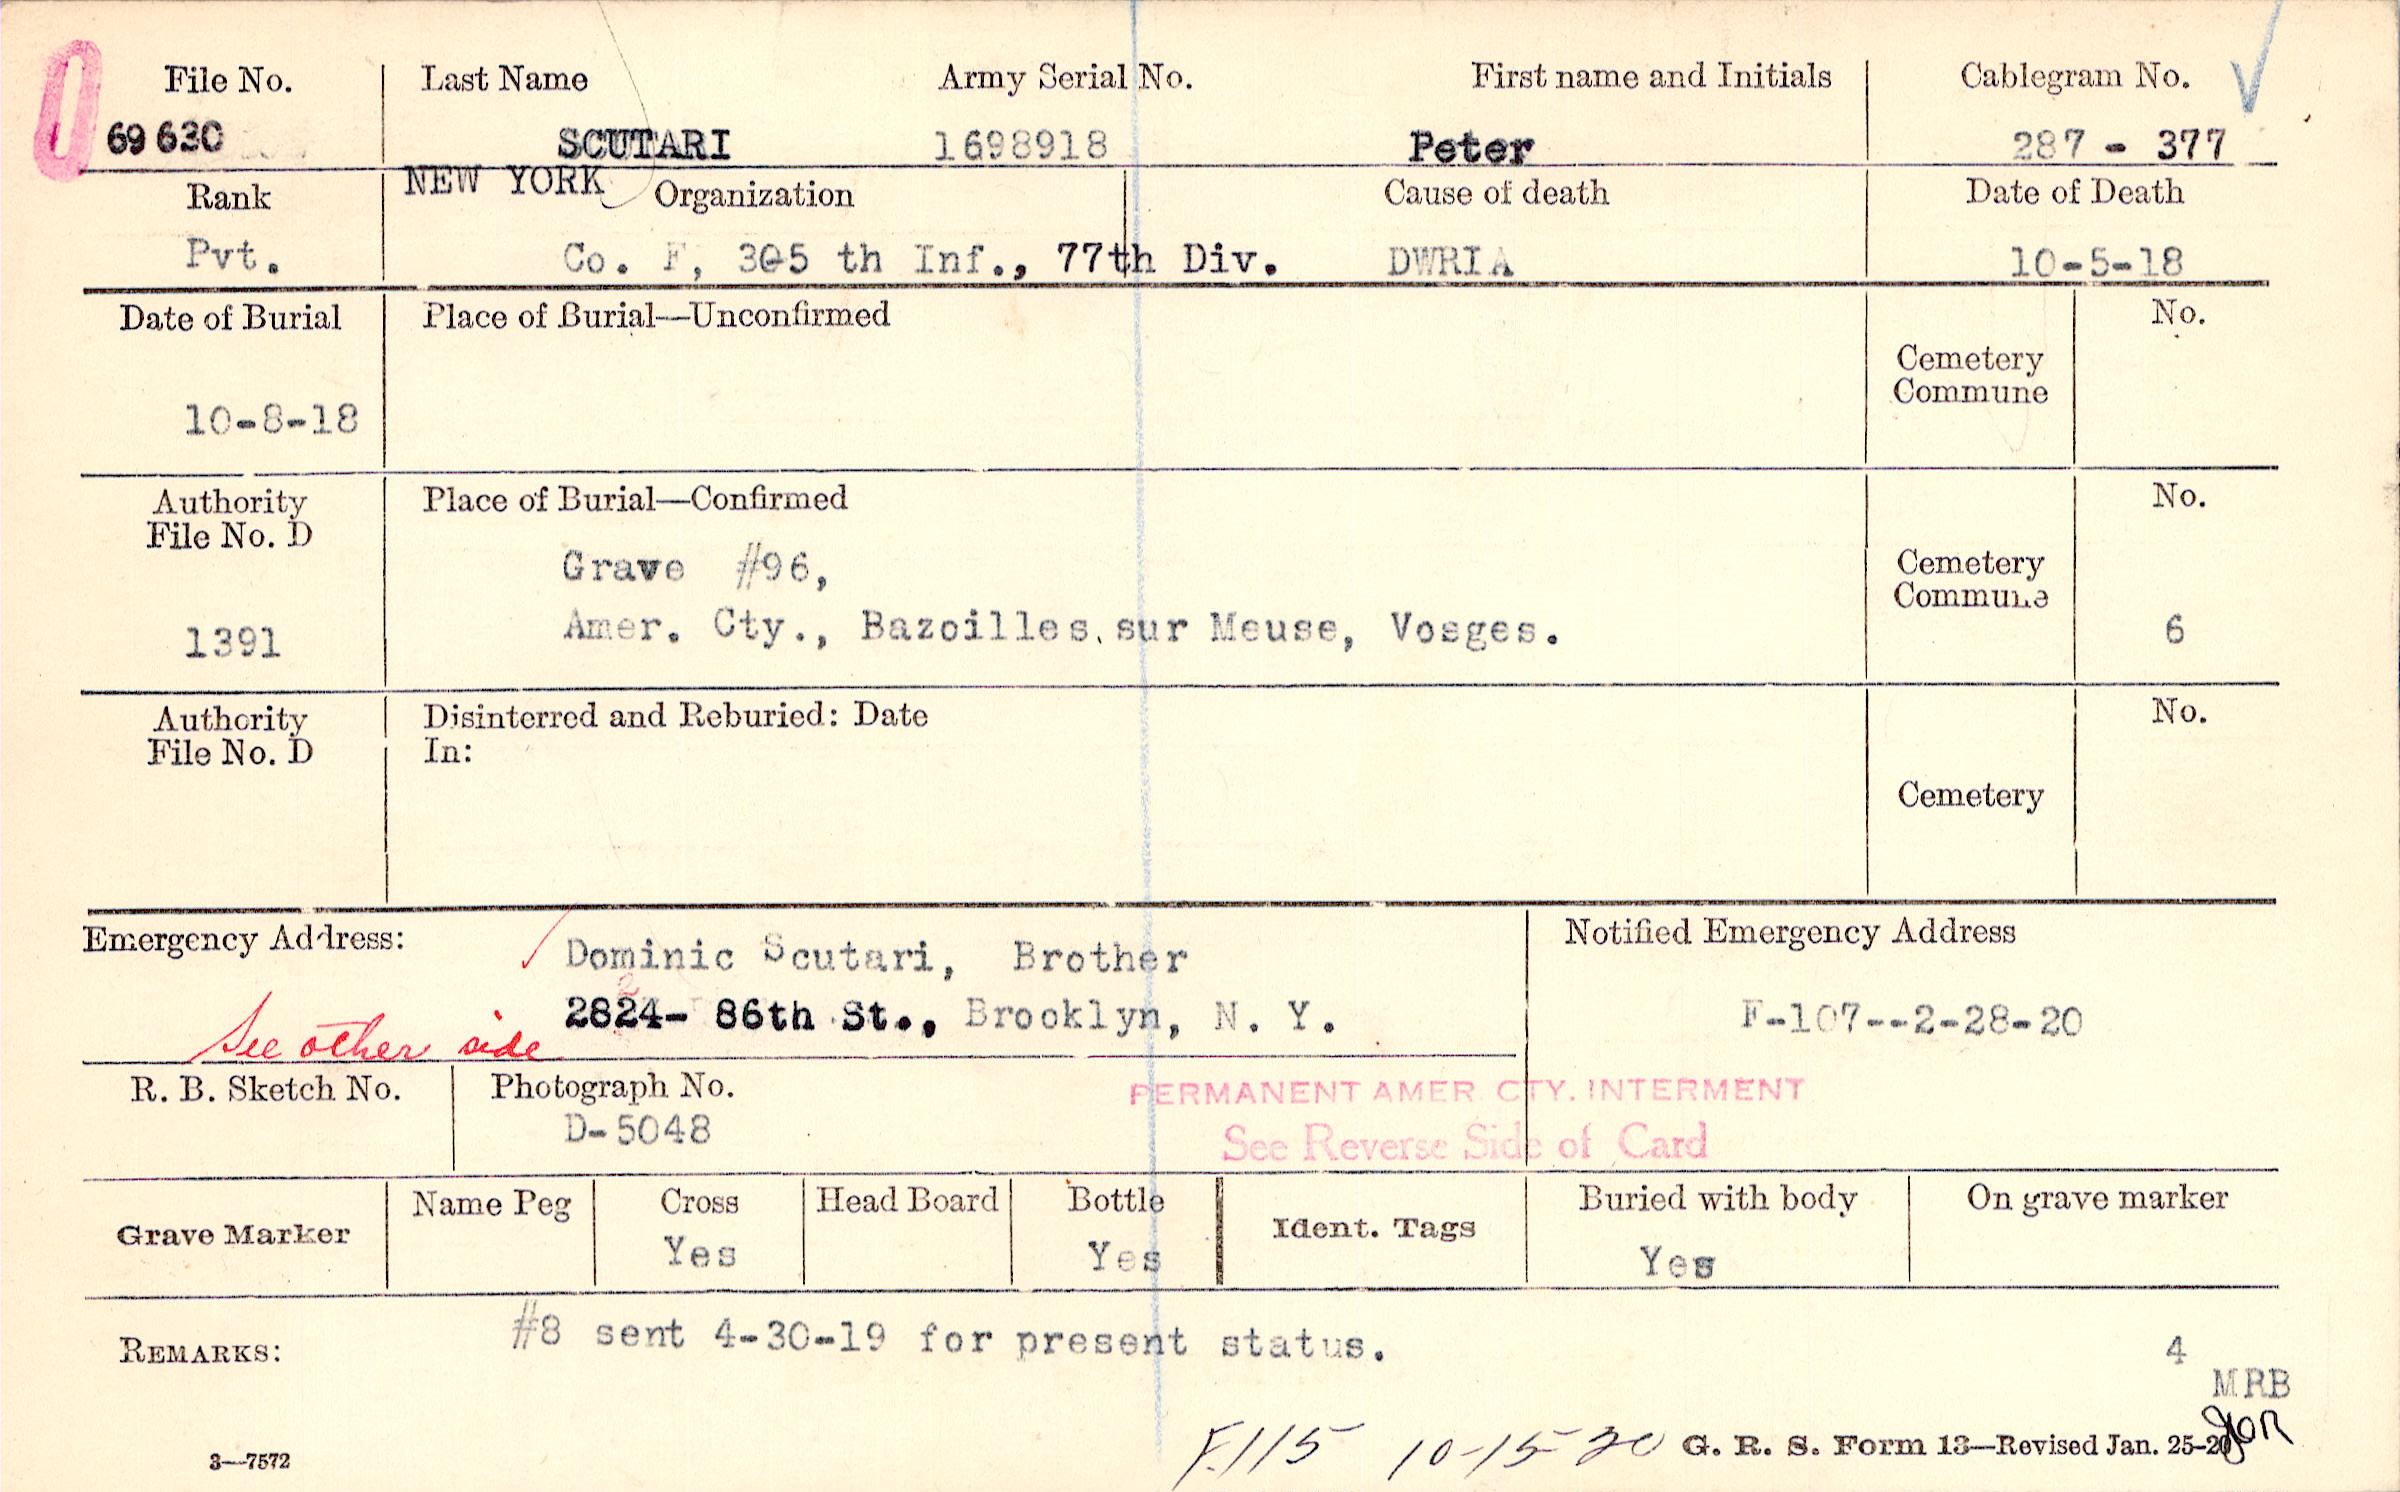 File No. Last Name Army Serial No. First name and Initials Cablegram No.
69630 SCUTARI 1698918 Peter 287 - 377
NEW YORK
Rank Organization Cause of death Date of Death
Pvt. Co. F, 305 th Inf., 77th Div. DWRIA 10-5-18
Date of Burial Place of Burial—Unconfirmed No.
Cemetery
Commune
10-8-18
Authority Place of Burial—Confirmed No.
File No. D
Grave #96, Cemetery
Commune
1391 Amer. Cty., Bazoilles sur Meuse, Vosges. 6
Authority Disinterred and Reburied: Date No.
File No. D In:
Cemetery
Emergency Address: Dominic Scutari, Brother Notified Emergency Address
2824- 86th St., Brooklyn, N. Y. F-107--2-28-20
See other side
R. B. Sketch No. Photograph No. PERMANENT AMER CTY. INTERMENT
D-5048 See Reverse Side of Card
Grave Marker Name Peg Cross Head Board Bottle Ident. Tags Buried with body On grave marker
Yes Yes Yes
REMARKS: #8 sent 4-30-19 for present status. 4
MRB
3—7572 F.115 10-15-20 G. R. S. Form 13—Revised Jan. 25-20